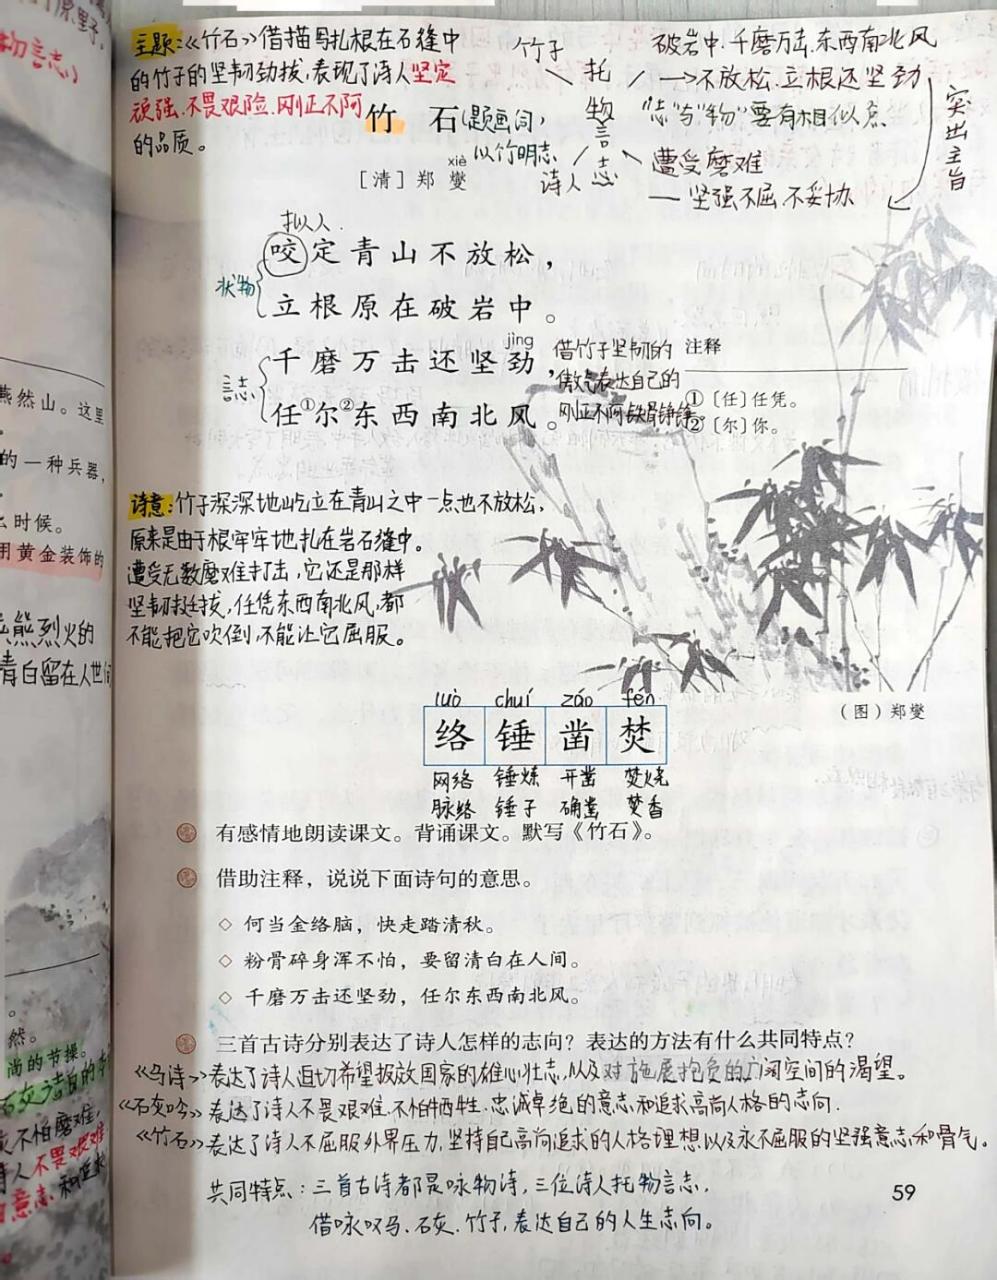 物言志)
主题:《竹石》借描写扎根在石缝中
的竹子的坚韧劲拔,表现了诗人坚定
顽强、不畏艰险、刚正不阿
的品质。
竹石
(题画词,
以竹明志
xiè
[清]郑燮
竹子
诗人
托物言志
破岩中、千磨万击、东西南北风
→不放松、立根、还坚劲
“志”与“物”要有相似点
遭受磨难
坚强不屈、不妥协
突出主旨
拟人
咬定青山不放松,
状物
立根原在破岩中。
jìng
千磨万击还坚劲,
言志
任①尔②东西南北风。
借竹子坚韧的
傲气表达自己的
刚正不阿、铁骨铮铮。
注释
①〔任〕任凭。
②〔尔〕你。
诗意:竹子深深地屹立在青山之中一点也不放松,
原来是由于根牢牢地扎在岩石缝中。
遭受无数磨难打击,它还是那样
坚韧挺拔,任凭东西南北风,都
不能把它吹倒,不能让它屈服。
(图)郑燮
luò chuí záo fén
络锤凿焚
网络 锤炼 开凿 焚烧
脉络 锤子 确凿 焚香
有感情地朗读课文。背诵课文。默写《竹石》。
借助注释,说说下面诗句的意思。
◇ 何当金络脑,快走踏清秋。
◇ 粉骨碎身浑不怕,要留清白在人间。
◇ 千磨万击还坚劲,任尔东西南北风。
三首古诗分别表达了诗人怎样的志向?表达的方法有什么共同特点?
《马诗》表达了诗人迫切希望报效国家的雄心壮志,以及对施展抱负的广阔空间的渴望。
《石灰吟》表达了诗人不畏艰难、不怕牺牲、忠诚卓绝的意志和追求高尚人格的志向.
《竹石》表达了诗人不屈服外界压力,坚持自己高尚追求的人格理想以及永不屈服的坚强意志和骨气。
共同特点:三首古诗都是咏物诗,三位诗人托物言志,
借咏叹马、石灰、竹子,表达自己的人生志向。
59
燕然山。这里
的一种兵器,
时候。
用黄金装饰的
熊烈火的
青白留在人世间
然。
尚的节操。
不怕磨难,
人不畏艰难
意志